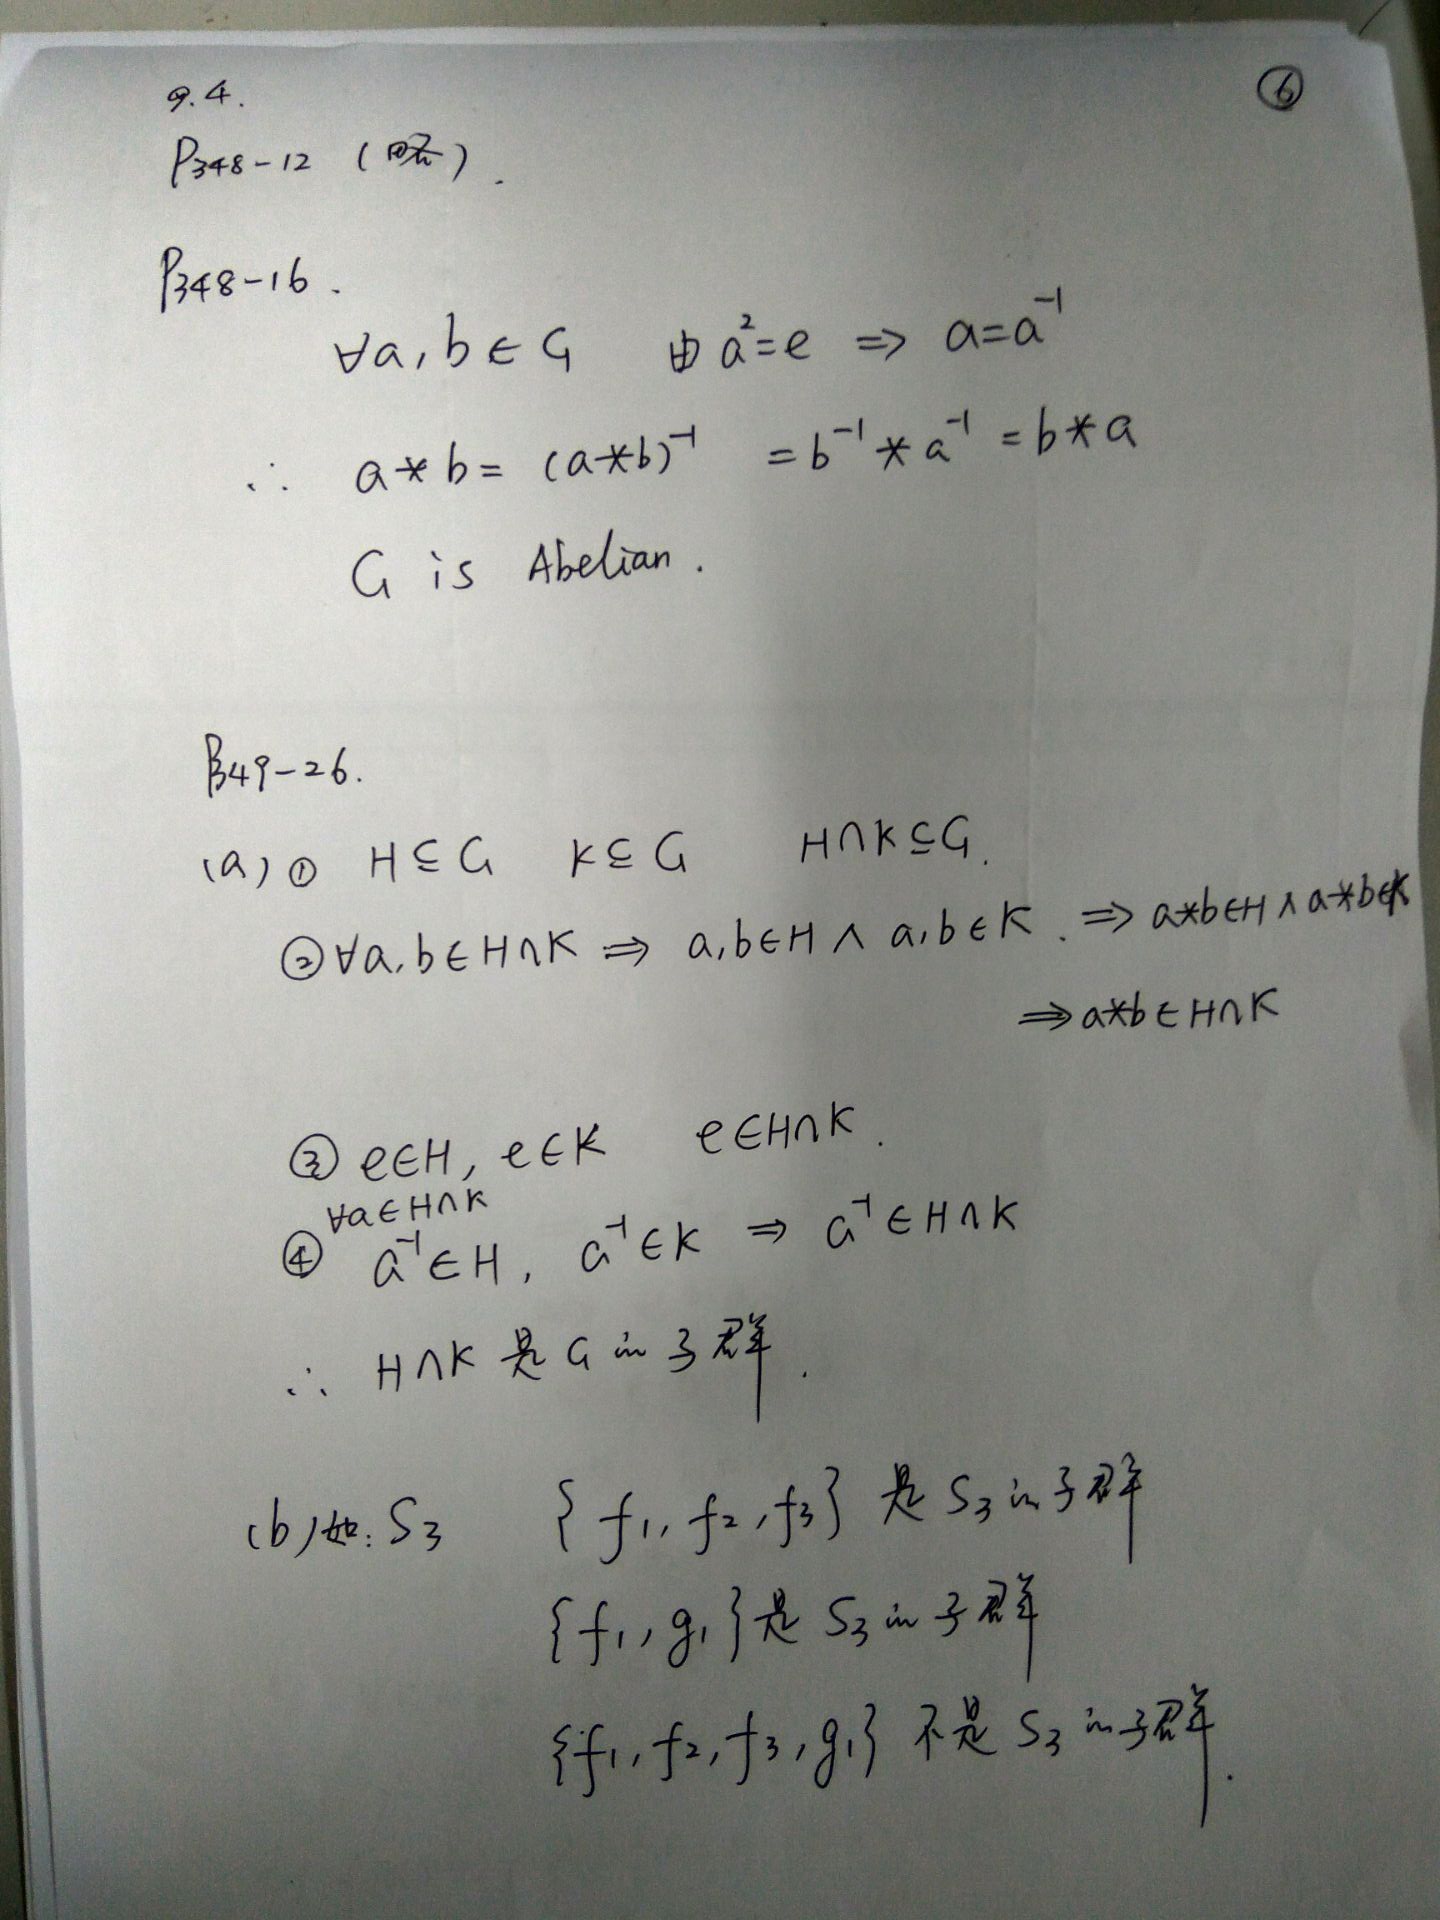 9.4.
⑥
P348-12 (略).
P348-16.
∀a,b∈G 由a²=e ⇒ a=a⁻¹
∴ a*b=(a*b)⁻¹ =b⁻¹*a⁻¹=b*a
G is Abelian.
P349-26.
(a)① H⊆G K⊆G H∩K⊆G.
②∀a,b∈H∩K ⇒ a,b∈H∧a,b∈K. ⇒ a*b∈H∧a*b∈K
⇒a*b∈H∩K
③ e∈H, e∈K e∈H∩K.
∀a∈H∩K
④ a⁻¹∈H, a⁻¹∈K ⇒ a⁻¹∈H∩K
∴ H∩K是G的子群.
(b)如:S₃ {f₁,f₂,f₃}是S₃的子群
{f₁,g₁}是S₃的子群
{f₁,f₂,f₃,g₁}不是S₃的子群.